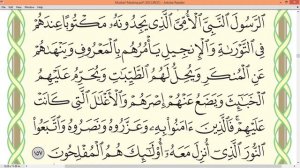 ٱلرَّسُولَ ٱلنَّبِىَّ ٱلْأُمِّىَّ ٱلَّذِى يَجِدُونَهُۥ مَكْتُوبًا عِندَهُمْ
فِى ٱلتَّوْرَىٰةِ وَٱلْإِنجِيلِ يَأْمُرُهُم بِٱلْمَعْرُوفِ وَيَنْهَىٰهُمْ
عَنِ ٱلْمُنكَرِ وَيُحِلُّ لَهُمُ ٱلطَّيِّبَٰتِ وَيُحَرِّمُ عَلَيْهِمُ
ٱلْخَبَٰٓئِثَ وَيَضَعُ عَنْهُمْ إِصْرَهُمْ وَٱلْأَغْلَٰلَ ٱلَّتِى كَانَتْ
عَلَيْهِمْ ۚ فَٱلَّذِينَ ءَامَنُوا۟ بِهِۦ وَعَزَّرُوهُ وَنَصَرُوهُ وَٱتَّبَعُوا۟
ٱلنُّورَ ٱلَّذِىٓ أُنزِلَ مَعَهُۥٓ ۙ أُو۟لَٰٓئِكَ هُمُ ٱلْمُفْلِحُونَ ١٥٧